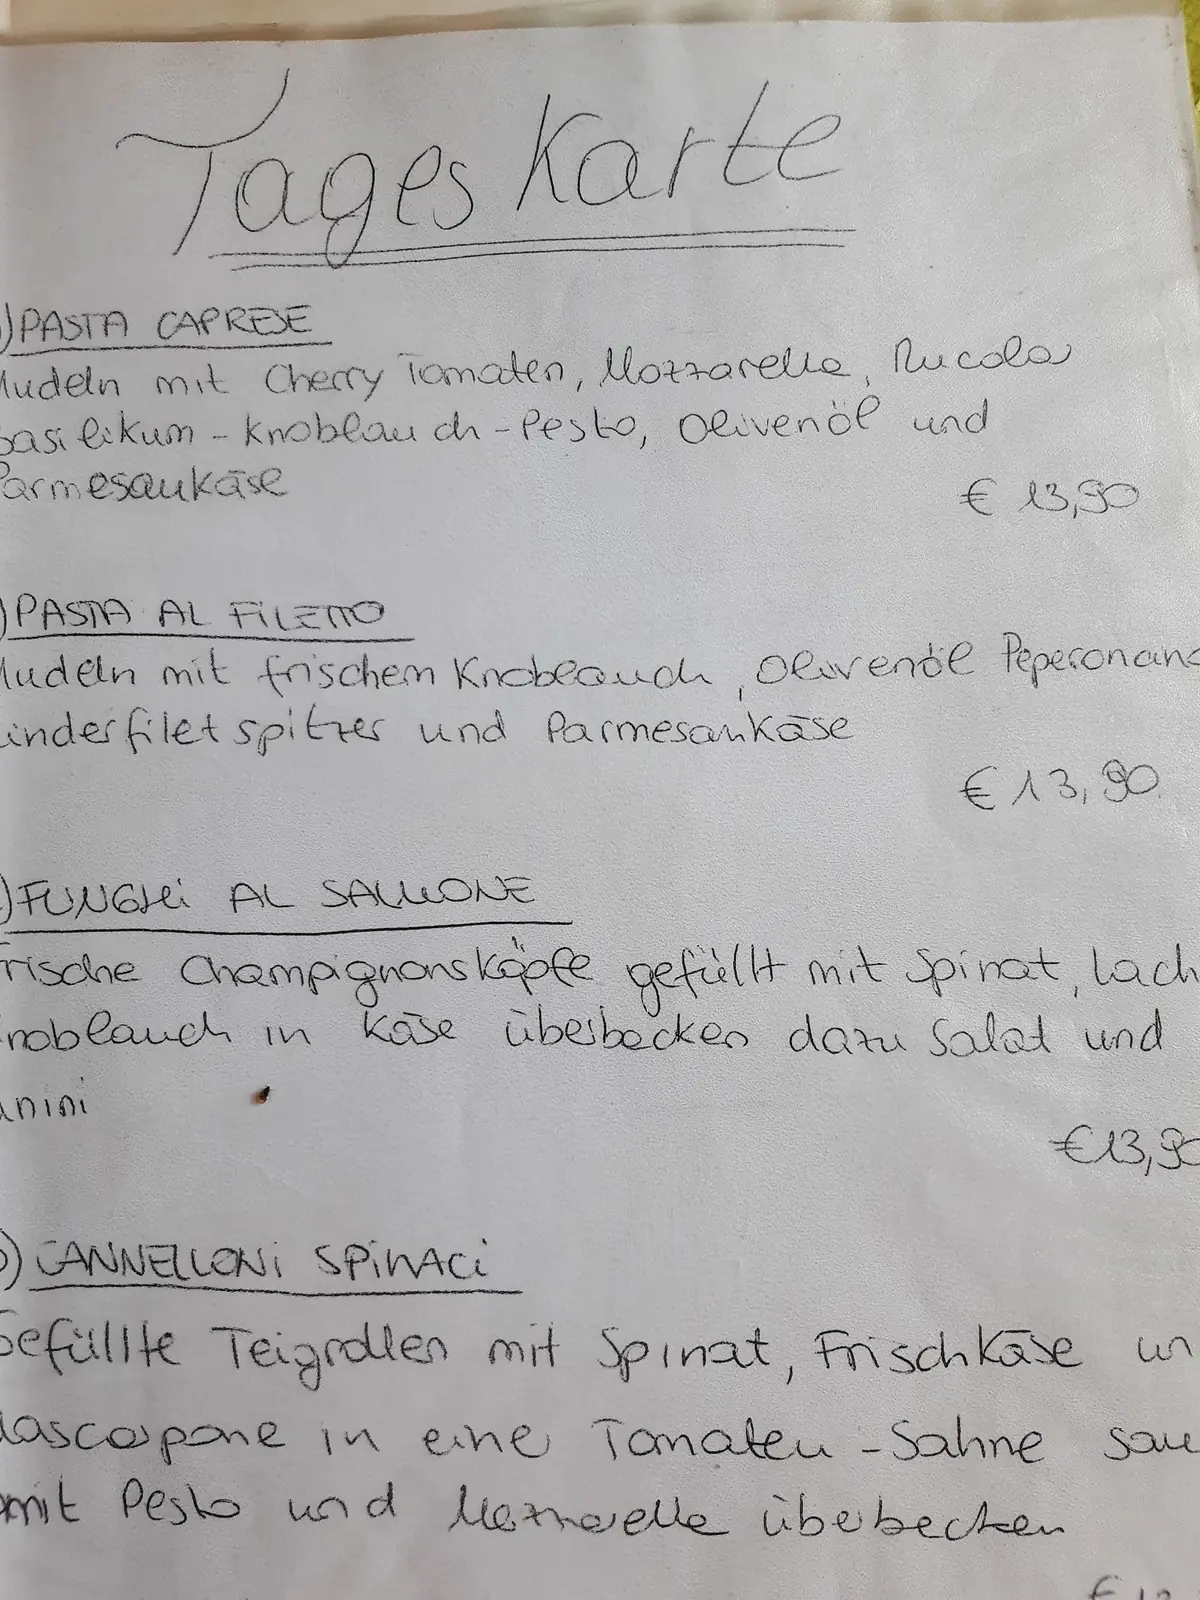 Tages Karte
)PASTA CAPRESE
Nudeln mit Cherry Tomaten, Mozzarella, Rucola
Basilikum-Knoblauch-Pesto, Olivenöl und
Parmesankäse
€ 13,90
)PASTA AL FILETTO
Nudeln mit frischem Knoblauch, Olivenöl Peperoncino
inderfilet spitzer und Parmesankäse
€ 13,90
)FUNGHI AL SALMONE
rische Champignonsköpfe gefüllt mit Spinat, Lach
noblauch in Käse überbacken dazu Salat und
nini
€13,90
)CANNELLONI SPINACI
Gefüllte Teigrollen mit Spinat, Frischkäse un
ascarpone in eine Tomaten-Sahne
mit Pesto und Mozzarella überbacken